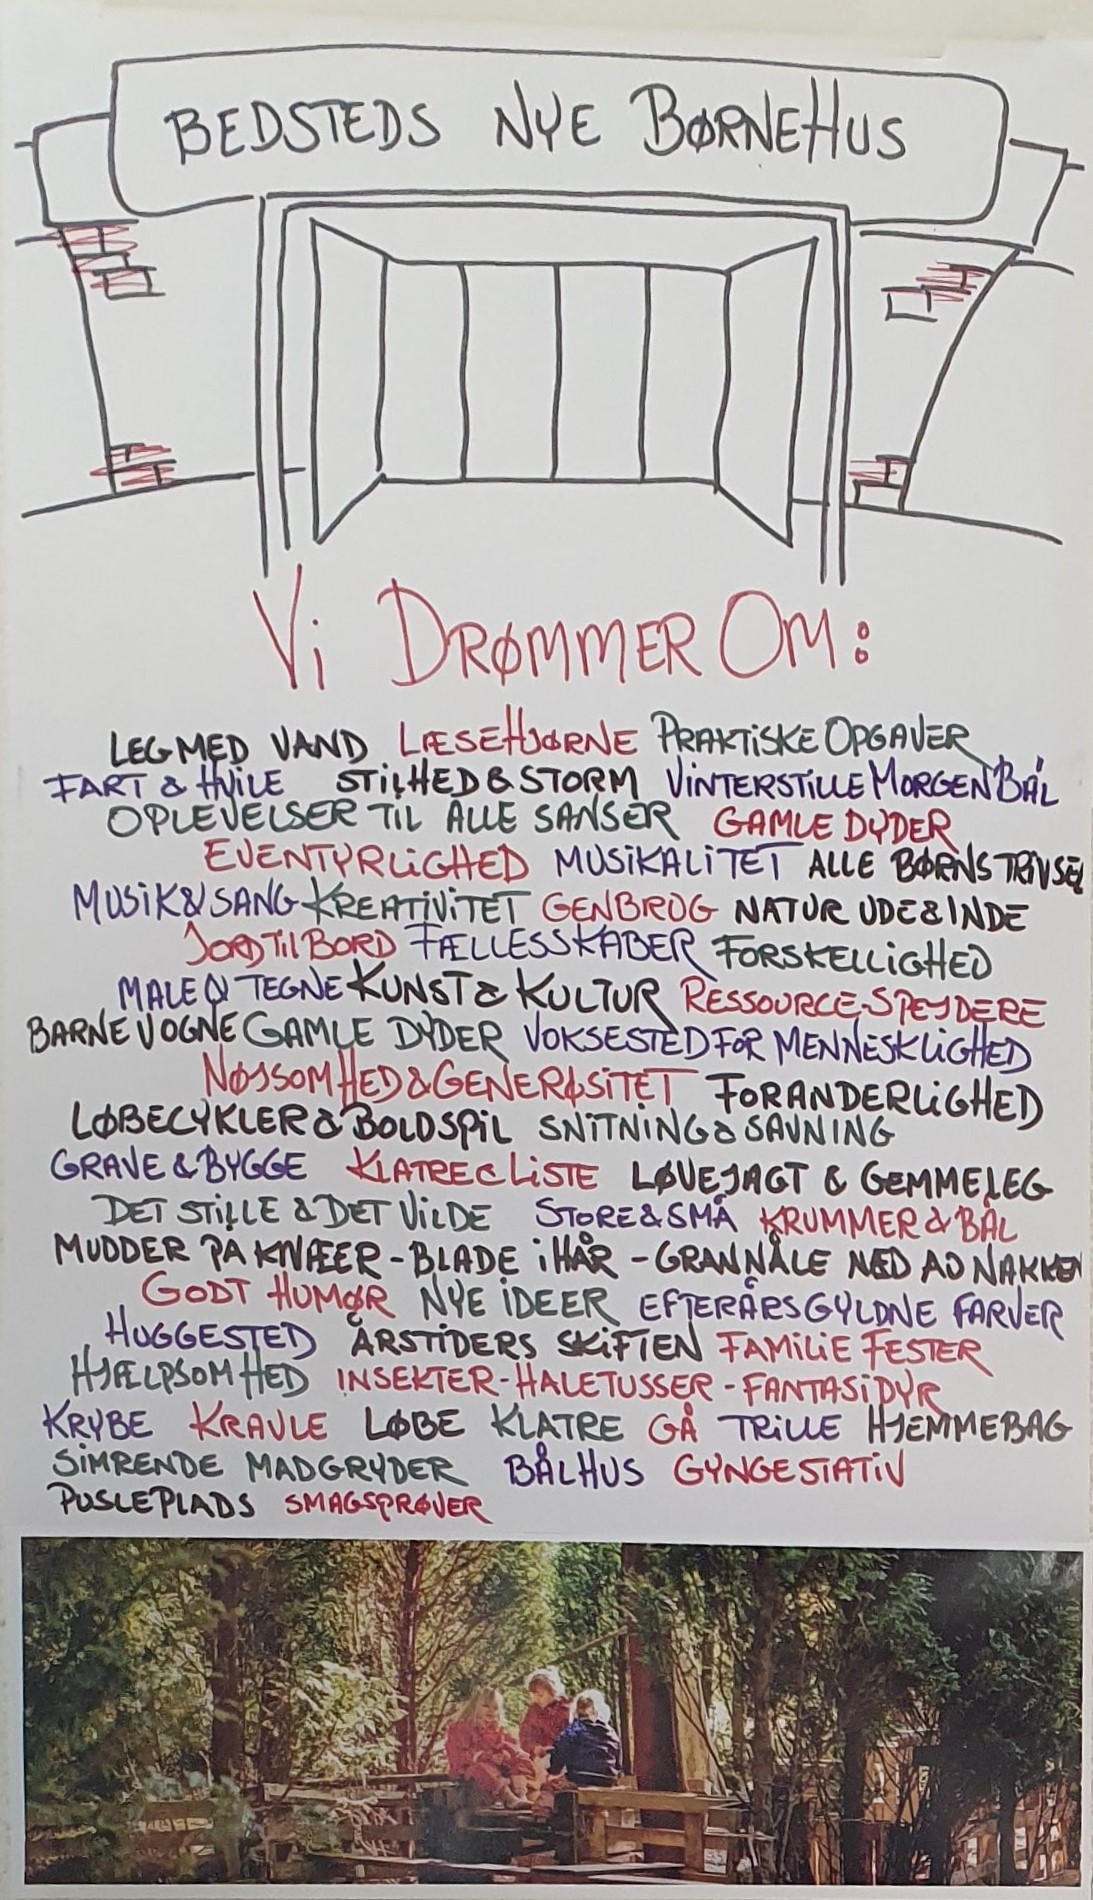 BEDSTEDS NYE BØRNEHUS
VI DRØMMER OM:
LEG MED VAND LÆSEHJØRNE PRAKTISKE OPGAVER
FART & HVILE STILHED & STORM VINTERSTILLE MORGENBÅL
OPLEVELSER TIL ALLE SANSER GAMLE DYDER
EVENTYRLIGHED MUSIKALITET ALLE BØRNS TRIVSEL
MUSIK & SANG KREATIVITET GENBRUG NATUR UDE & INDE
JORD TIL BORD FÆLLESSKABER FORSKELLIGHED
MALE & TEGNE KUNST & KULTUR RESSOURCE-SPEJDERE
BARNEVOGNE GAMLE DYDER VOKSESTED FOR MENNESKLIGHED
NØJSOMHED & GENERØSITET FORANDERLIGHED
LØBECYKLER & BOLDSPIL SNITNING & SAVNING
GRAVE & BYGGE KLATRE & LISTE LØVEJAGT & GEMMELEG
DET STILLE & DET VILDE STORE & SMÅ KRUMMER & BÅL
MUDDER PÅ KNÆER - BLADE I HÅR - GRANNÅLE NED AD NAKKEN
GODT HUMØR NYE IDEER EFTERÅRSGYLDNE FARVER
HYGGESTED ÅRSTIDERS SKIFTEN FAMILIE FESTER
HJÆLPSOMHED INSEKTER - HALETUSSER - FANTASIDYR
KRYBE KRAVLE LØBE KLATRE GÅ TRILLE HJEMMEBAG
SIMRENDE MADGRYDER BÅLHUS GYNGESTATIV
PUSLEPLADS SMAGSPRØVER